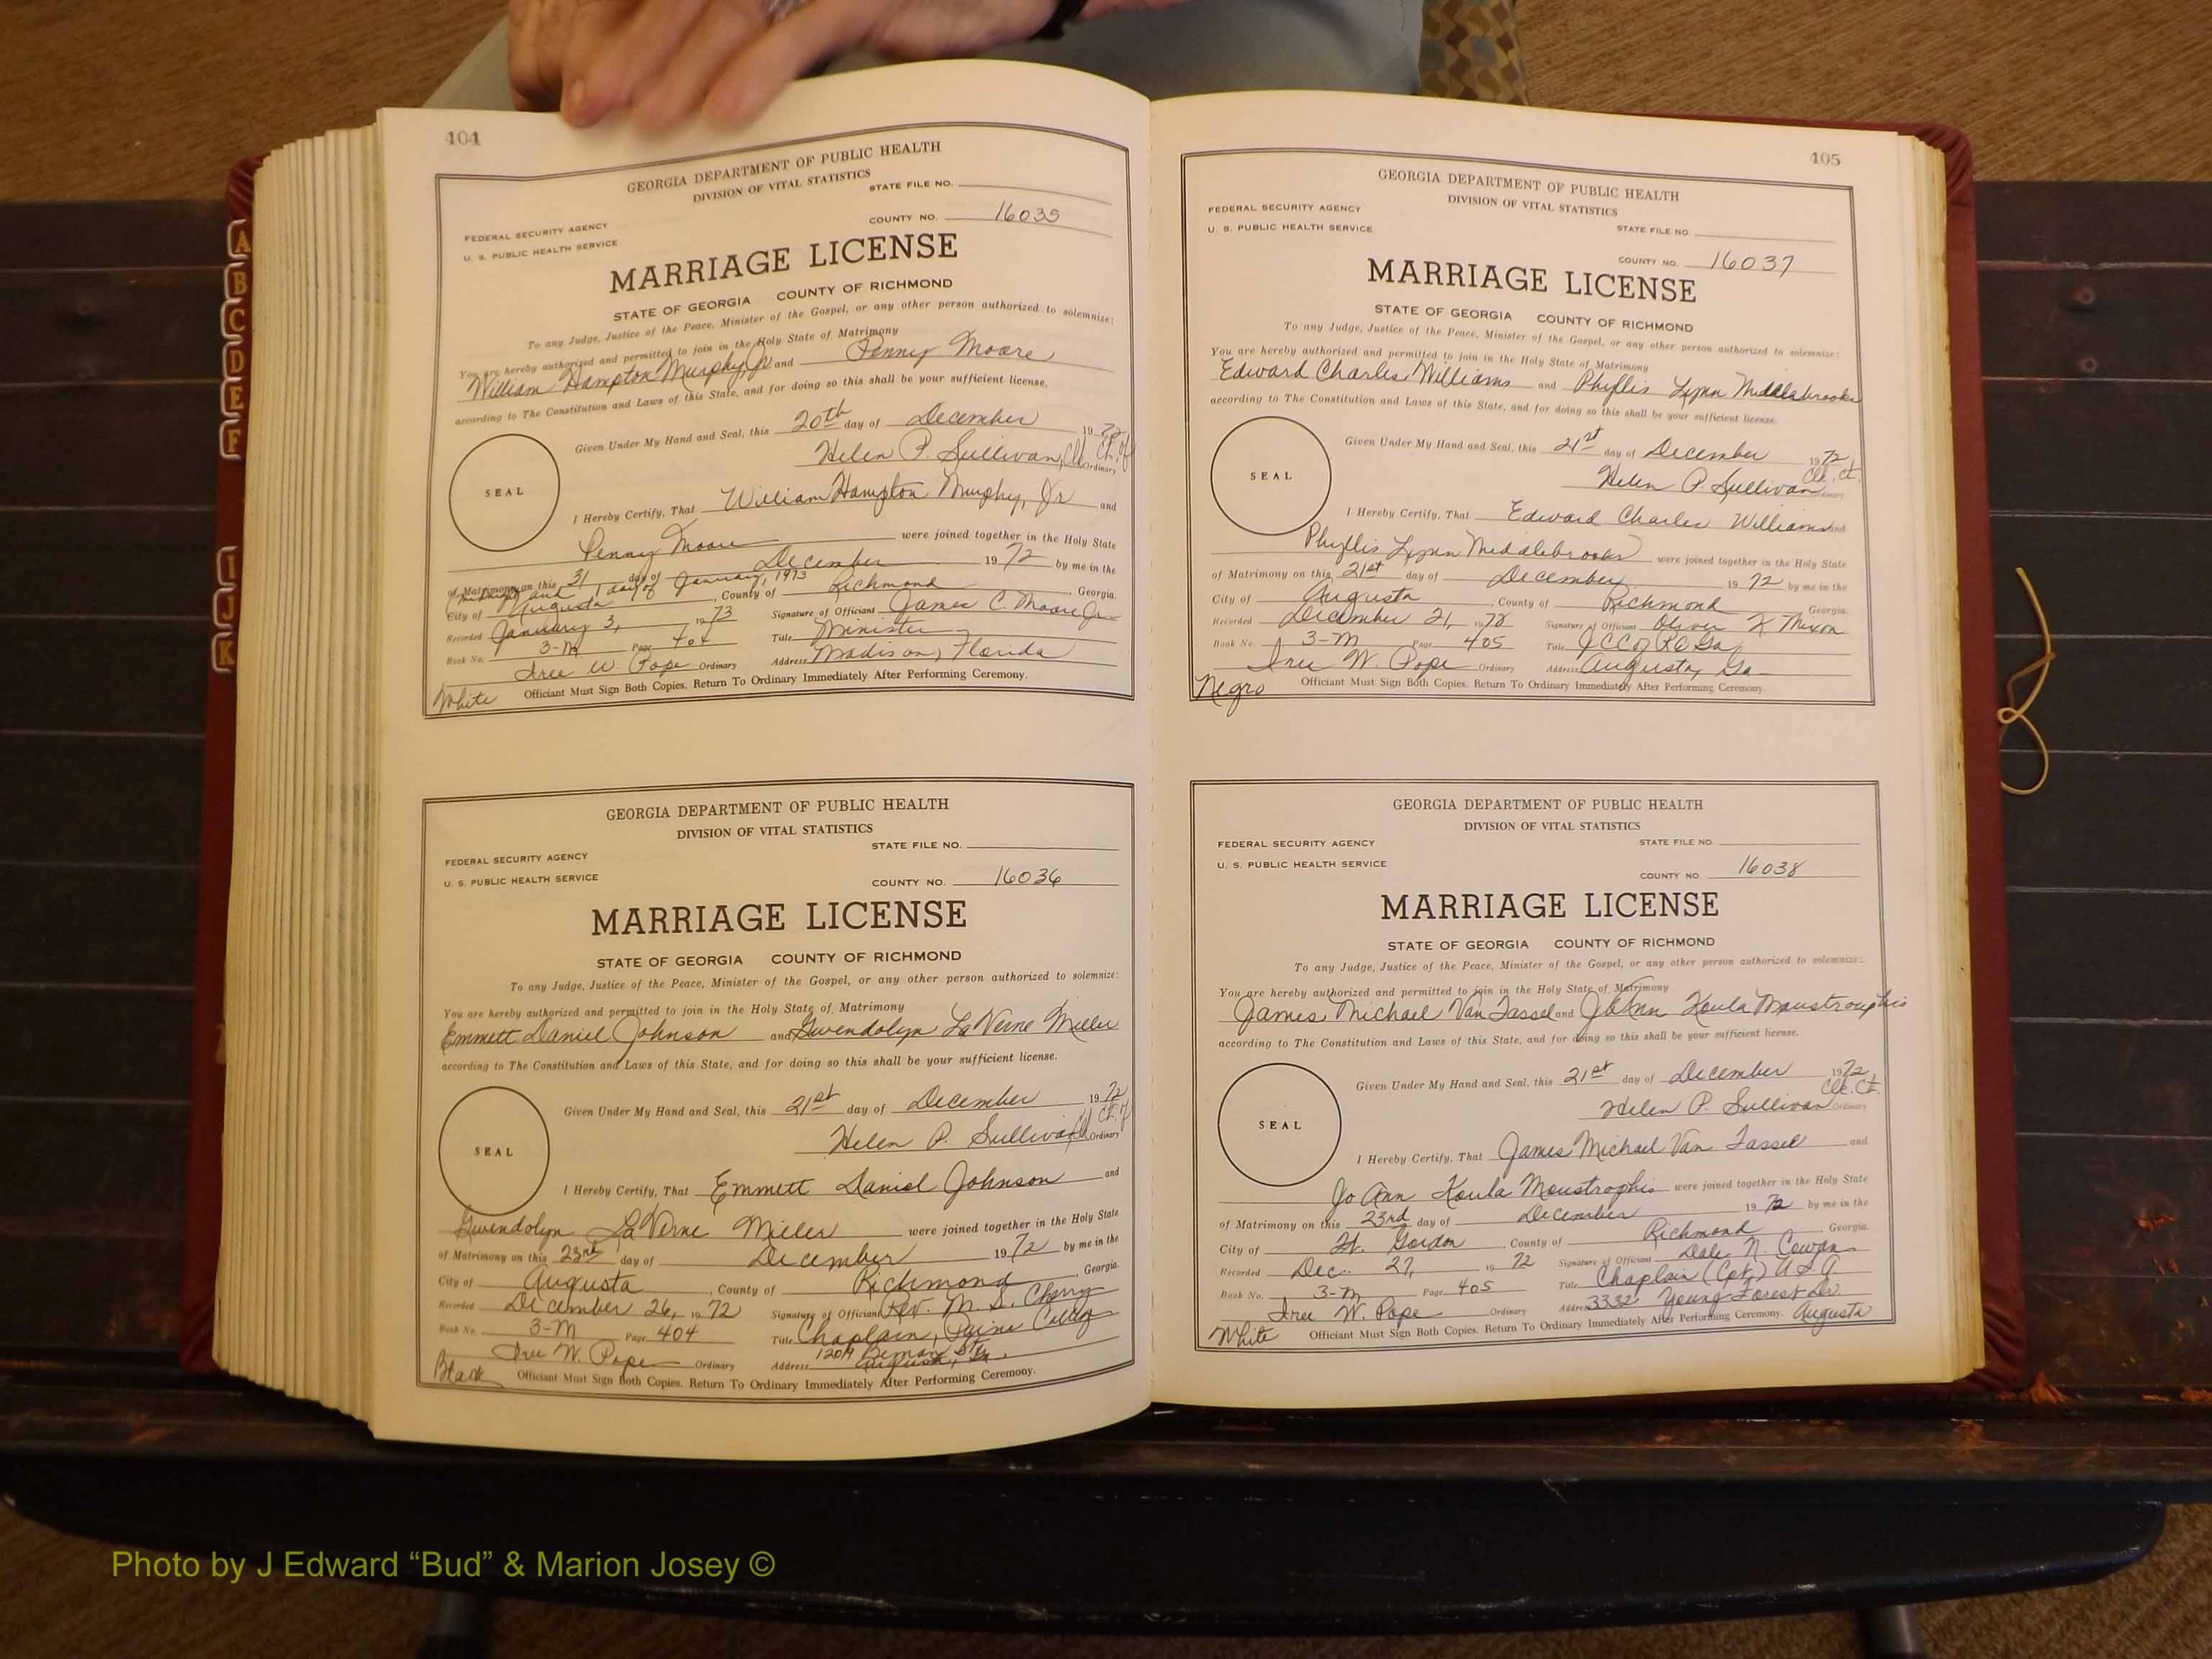 A
B
C
D
E
F
I
J
K
404
GEORGIA DEPARTMENT OF PUBLIC HEALTH
DIVISION OF VITAL STATISTICS
STATE FILE NO.
FEDERAL SECURITY AGENCY
U. S. PUBLIC HEALTH SERVICE
COUNTY NO. 16035
MARRIAGE LICENSE
STATE OF GEORGIA COUNTY OF RICHMOND
To any Judge, Justice of the Peace, Minister of the Gospel, or any other person authorized to solemnize:
You are hereby authorized and permitted to join in the Holy State of Matrimony
William Hampton Murphy, Jr and Penny Moore
according to The Constitution and Laws of this State, and for doing so this shall be your sufficient license.
SEAL
Given Under My Hand and Seal, this 20th day of December 1972
Helen P. Sullivan, Clk Ct. of Ordinary
I Hereby Certify, That William Hampton Murphy, Jr and
Penny Moore were joined together in the Holy State
of Matrimony on this 31 day of December 1972 by me in the
(midnight and 1 day of January, 1973
City of Augusta, County of Richmond, Georgia.
Recorded January 3, 1973 Signature of Officiant James C. Moore Jr
Book No. 3-M Page 404 Title Minister
Iree W. Pope Ordinary Address Madison, Florida
White Officiant Must Sign Both Copies. Return To Ordinary Immediately After Performing Ceremony.
GEORGIA DEPARTMENT OF PUBLIC HEALTH
DIVISION OF VITAL STATISTICS
STATE FILE NO.
FEDERAL SECURITY AGENCY
U. S. PUBLIC HEALTH SERVICE
COUNTY NO. 16036
MARRIAGE LICENSE
STATE OF GEORGIA COUNTY OF RICHMOND
To any Judge, Justice of the Peace, Minister of the Gospel, or any other person authorized to solemnize:
You are hereby authorized and permitted to join in the Holy State of Matrimony
Emmett Daniel Johnson and Gwendolyn La Verne Miller
according to The Constitution and Laws of this State, and for doing so this shall be your sufficient license.
SEAL
Given Under My Hand and Seal, this 21st day of December 1972
Helen P. Sullivan Ct. of Ordinary
I Hereby Certify, That Emmett Daniel Johnson and
Gwendolyn La Verne Miller were joined together in the Holy State
of Matrimony on this 23rd day of December 1972 by me in the
City of Augusta, County of Richmond, Georgia.
Recorded December 26, 1972 Signature of Officiant Rev. M. S. Cherry
Book No. 3-M Page 404 Title Chaplain, Paine College
Iree W. Pope Ordinary Address Augusta, Ga.
Black Officiant Must Sign Both Copies. Return To Ordinary Immediately After Performing Ceremony.
405
GEORGIA DEPARTMENT OF PUBLIC HEALTH
DIVISION OF VITAL STATISTICS
FEDERAL SECURITY AGENCY
U. S. PUBLIC HEALTH SERVICE
STATE FILE NO.
COUNTY NO. 16037
MARRIAGE LICENSE
STATE OF GEORGIA COUNTY OF RICHMOND
To any Judge, Justice of the Peace, Minister of the Gospel, or any other person authorized to solemnize:
You are hereby authorized and permitted to join in the Holy State of Matrimony
Edward Charles Williams and Phyllis Lynn Middlebrooks
according to The Constitution and Laws of this State, and for doing so this shall be your sufficient license.
SEAL
Given Under My Hand and Seal, this 21st day of December 1972
Helen P. Sullivan Clk. Ct. Ordinary
I Hereby Certify, That Edward Charles Williams and
Phyllis Lynn Middlebrooks were joined together in the Holy State
of Matrimony on this 21st day of December 1972 by me in the
City of Augusta, County of Richmond Georgia.
Recorded December 21, 1972 Signature of Officiant Oliver K Mixon
Book No. 3-M Page 405 Title JCC of RC Ga
Iree W. Pope Ordinary Address Augusta, Ga
Negro Officiant Must Sign Both Copies. Return To Ordinary Immediately After Performing Ceremony.
GEORGIA DEPARTMENT OF PUBLIC HEALTH
DIVISION OF VITAL STATISTICS
FEDERAL SECURITY AGENCY
STATE FILE NO.
U. S. PUBLIC HEALTH SERVICE
COUNTY NO. 16038
MARRIAGE LICENSE
STATE OF GEORGIA COUNTY OF RICHMOND
To any Judge, Justice of the Peace, Minister of the Gospel, or any other person authorized to solemnize:
You are hereby authorized and permitted to join in the Holy State of Matrimony
James Michael Van Tassel and JoAnn Koula Moustrouphis
according to The Constitution and Laws of this State, and for doing so this shall be your sufficient license.
SEAL
Given Under My Hand and Seal, this 21st day of December 1972
Helen P. Sullivan Clk. Ct. Ordinary
I Hereby Certify, That James Michael Van Tassel and
Jo Ann Koula Moustrophis were joined together in the Holy State
of Matrimony on this 23rd day of December 1972 by me in the
City of Ft. Gordon, County of Richmond Georgia.
Recorded Dec. 27, 1972 Signature of Officiant Dale N. Cowan
Book No. 3-M Page 405 Title Chaplain (Cpt.) USA
Iree W. Pope Ordinary Address 3332 Young Forest Dr.
White Officiant Must Sign Both Copies. Return To Ordinary Immediately After Performing Ceremony. Augusta
Photo by J Edward “Bud” & Marion Josey ©